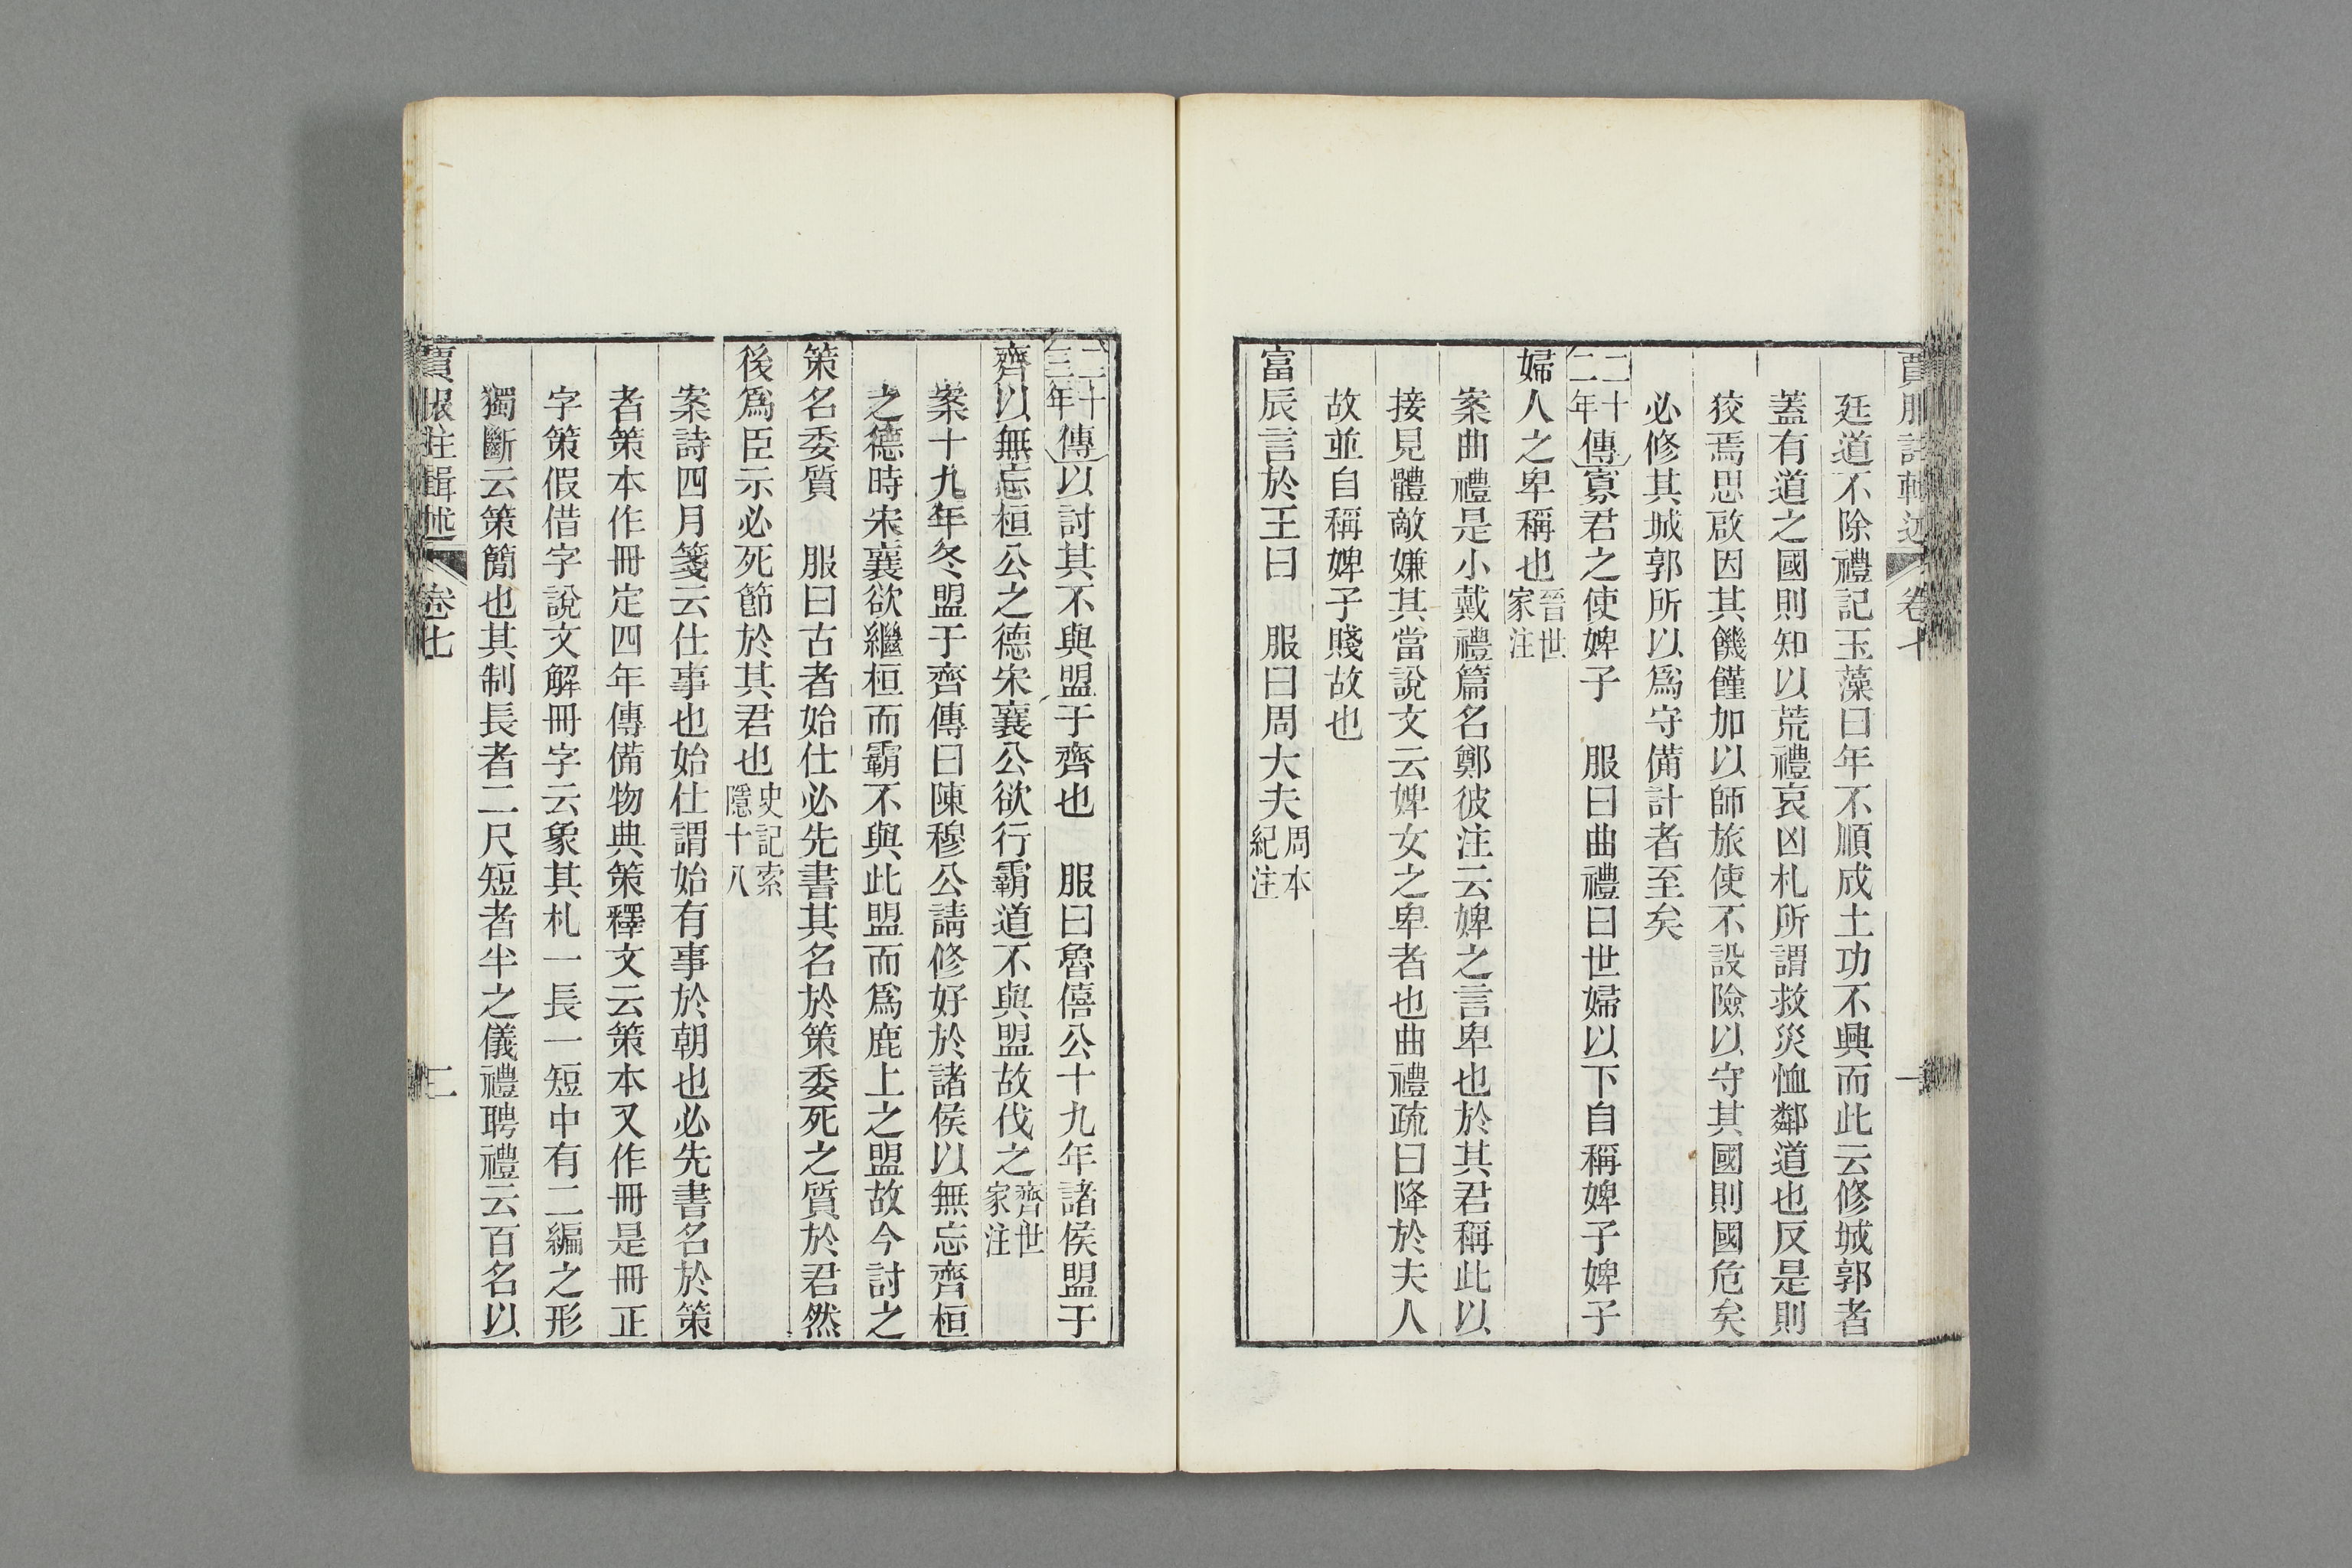 賈服註輯述 卷七 一
廷道不除禮記玉藻曰年不順成土功不興而此云修城郭者
蓋有道之國則知以荒禮哀凶札所謂救災恤鄰道也反是則
狡焉思啟因其饑饉加以師旅使不設險以守其國則國危矣
必修其城郭所以爲守備計者至矣
二十二年傳寡君之使婢子 服曰曲禮曰世婦以下自稱婢子婢子
婦人之卑稱也晉世家注
案曲禮是小戴禮篇名鄭彼注云婢之言卑也於其君稱此以
接見體敵嫌其當說文云婢女之卑者也曲禮疏曰降於夫人
故並自稱婢子賤故也
富辰言於王曰 服曰周大夫周本紀注
二十三年傳以討其不與盟于齊也 服曰魯僖公十九年諸侯盟于
齊以無忘桓公之德宋襄公欲行霸道不與盟故伐之齊世家注
案十九年冬盟于齊傳曰陳穆公請修好於諸侯以無忘齊桓
之德時宋襄欲繼桓而霸不與此盟而爲鹿上之盟故今討之
策名委質 服曰古者始仕必先書其名於策委死之質於君然
後爲臣示必死節於其君也史記索隱十八
案詩四月箋云仕事也始仕謂始有事於朝也必先書名於策
者策本作冊定四年傳備物典策釋文云策本又作冊是冊正
字策假借字說文解冊字云象其札一長一短中有二編之形
獨斷云策簡也其制長者二尺短者半之儀禮聘禮云百名以
賈服注輯述 卷七 二